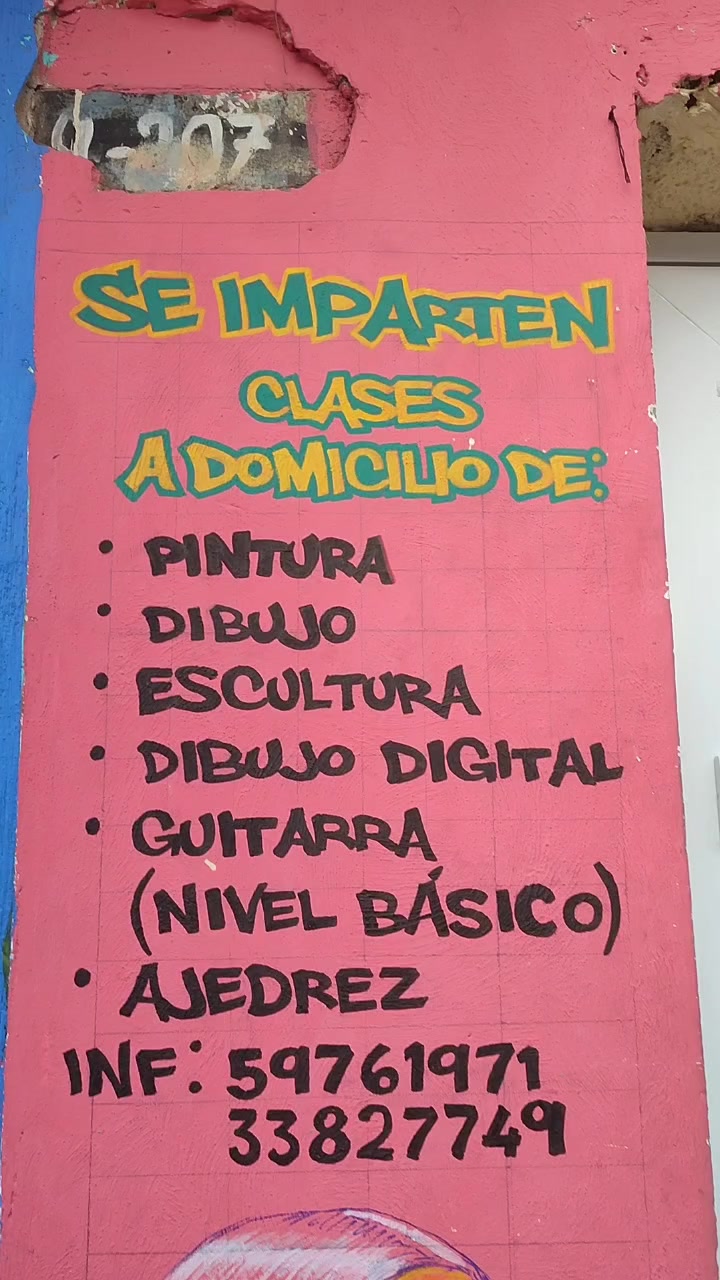 0-207
SE IMPARTEN
CLASES
A DOMICILIO DE:
• PINTURA
• DIBUJO
• ESCULTURA
• DIBUJO DIGITAL
• GUITARRA
(NIVEL BÁSICO)
• AJEDREZ
INF: 59761971
33827749